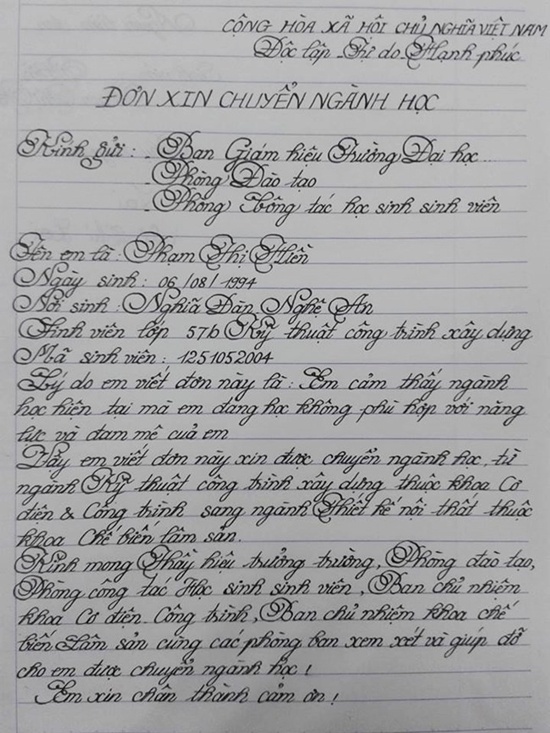 CỘNG HÒA XÃ HỘI CHỦ NGHĨA VIỆT NAM
Độc lập - Tự do - Hạnh phúc
ĐƠN XIN CHUYỂN NGÀNH HỌC
Kính gửi : - Ban Giám hiệu Trường Đại học ...
- Phòng Đào tạo
- Phòng Công tác học sinh sinh viên
Tên em là : Phạm Thị Hiền
Ngày sinh : 06/08/1994
Nơi sinh : Nghĩa Đàn, Nghệ An
Sinh viên lớp 57b Kỹ thuật công trình xây dựng
Mã sinh viên : 1251052004
Lý do em viết đơn này là : Em cảm thấy ngành
học hiện tại mà em đang học không phù hợp với năng
lực và đam mê của em
Vậy em viết đơn này xin được chuyển ngành học từ
ngành Kỹ thuật công trình xây dựng thuộc khoa Cơ
điện & Công trình sang ngành Thiết kế nội thất thuộc
khoa Chế biến lâm sản.
Kính mong Thầy hiệu trưởng trường, Phòng đào tạo,
Phòng công tác Học sinh sinh viên, Ban chủ nhiệm
khoa Cơ điện Công trình, Ban chủ nhiệm khoa chế
biến Lâm sản cùng các phòng ban xem xét và giúp đỡ
cho em được chuyển ngành học !
Em xin chân thành cảm ơn !